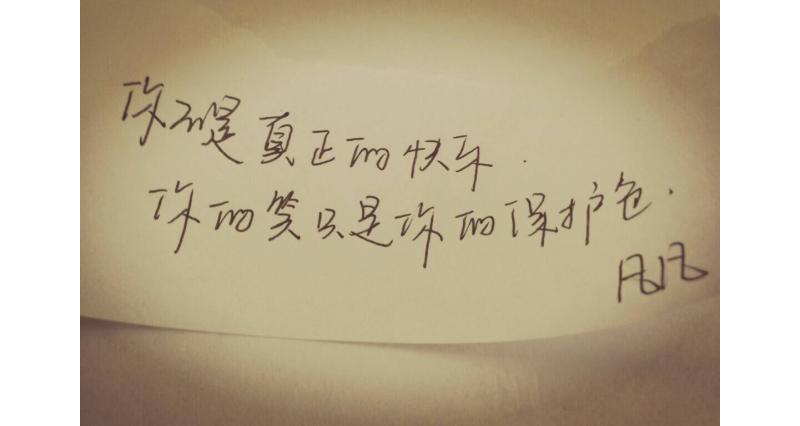 你不是真正的快乐.
你的笑只是你的保护色.
凡凡